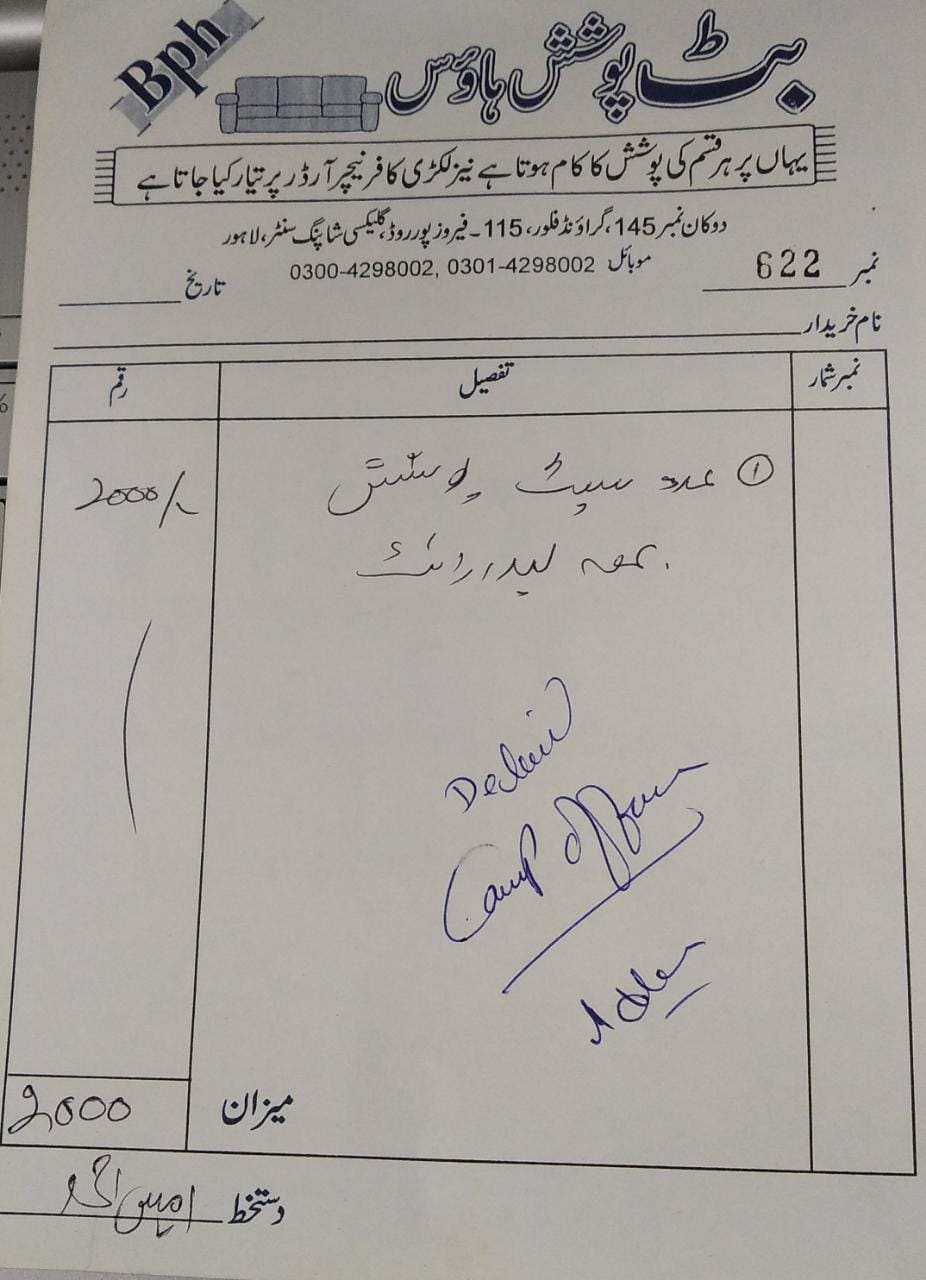 Bph
بٹ پوشش ہاؤس
یہاں پر ہر قسم کی پوشش کا کام ہوتا ہے نیز لکڑی کا فرنیچر آرڈر پر تیار کیا جاتا ہے
دوکان نمبر 145، گراؤنڈ فلور، 115۔ فیروز پور روڈ، گلیکسی شاپنگ سنٹر، لاہور
موبائل 0300-4298002, 0301-4298002
نمبر 622 تاریخ
نام خریدار
نمبر شمار تفصیل رقم
① عدد سیٹ پوشش 2000/-
بمعہ لیدر
Camp Office
میزان 2000
دستخط